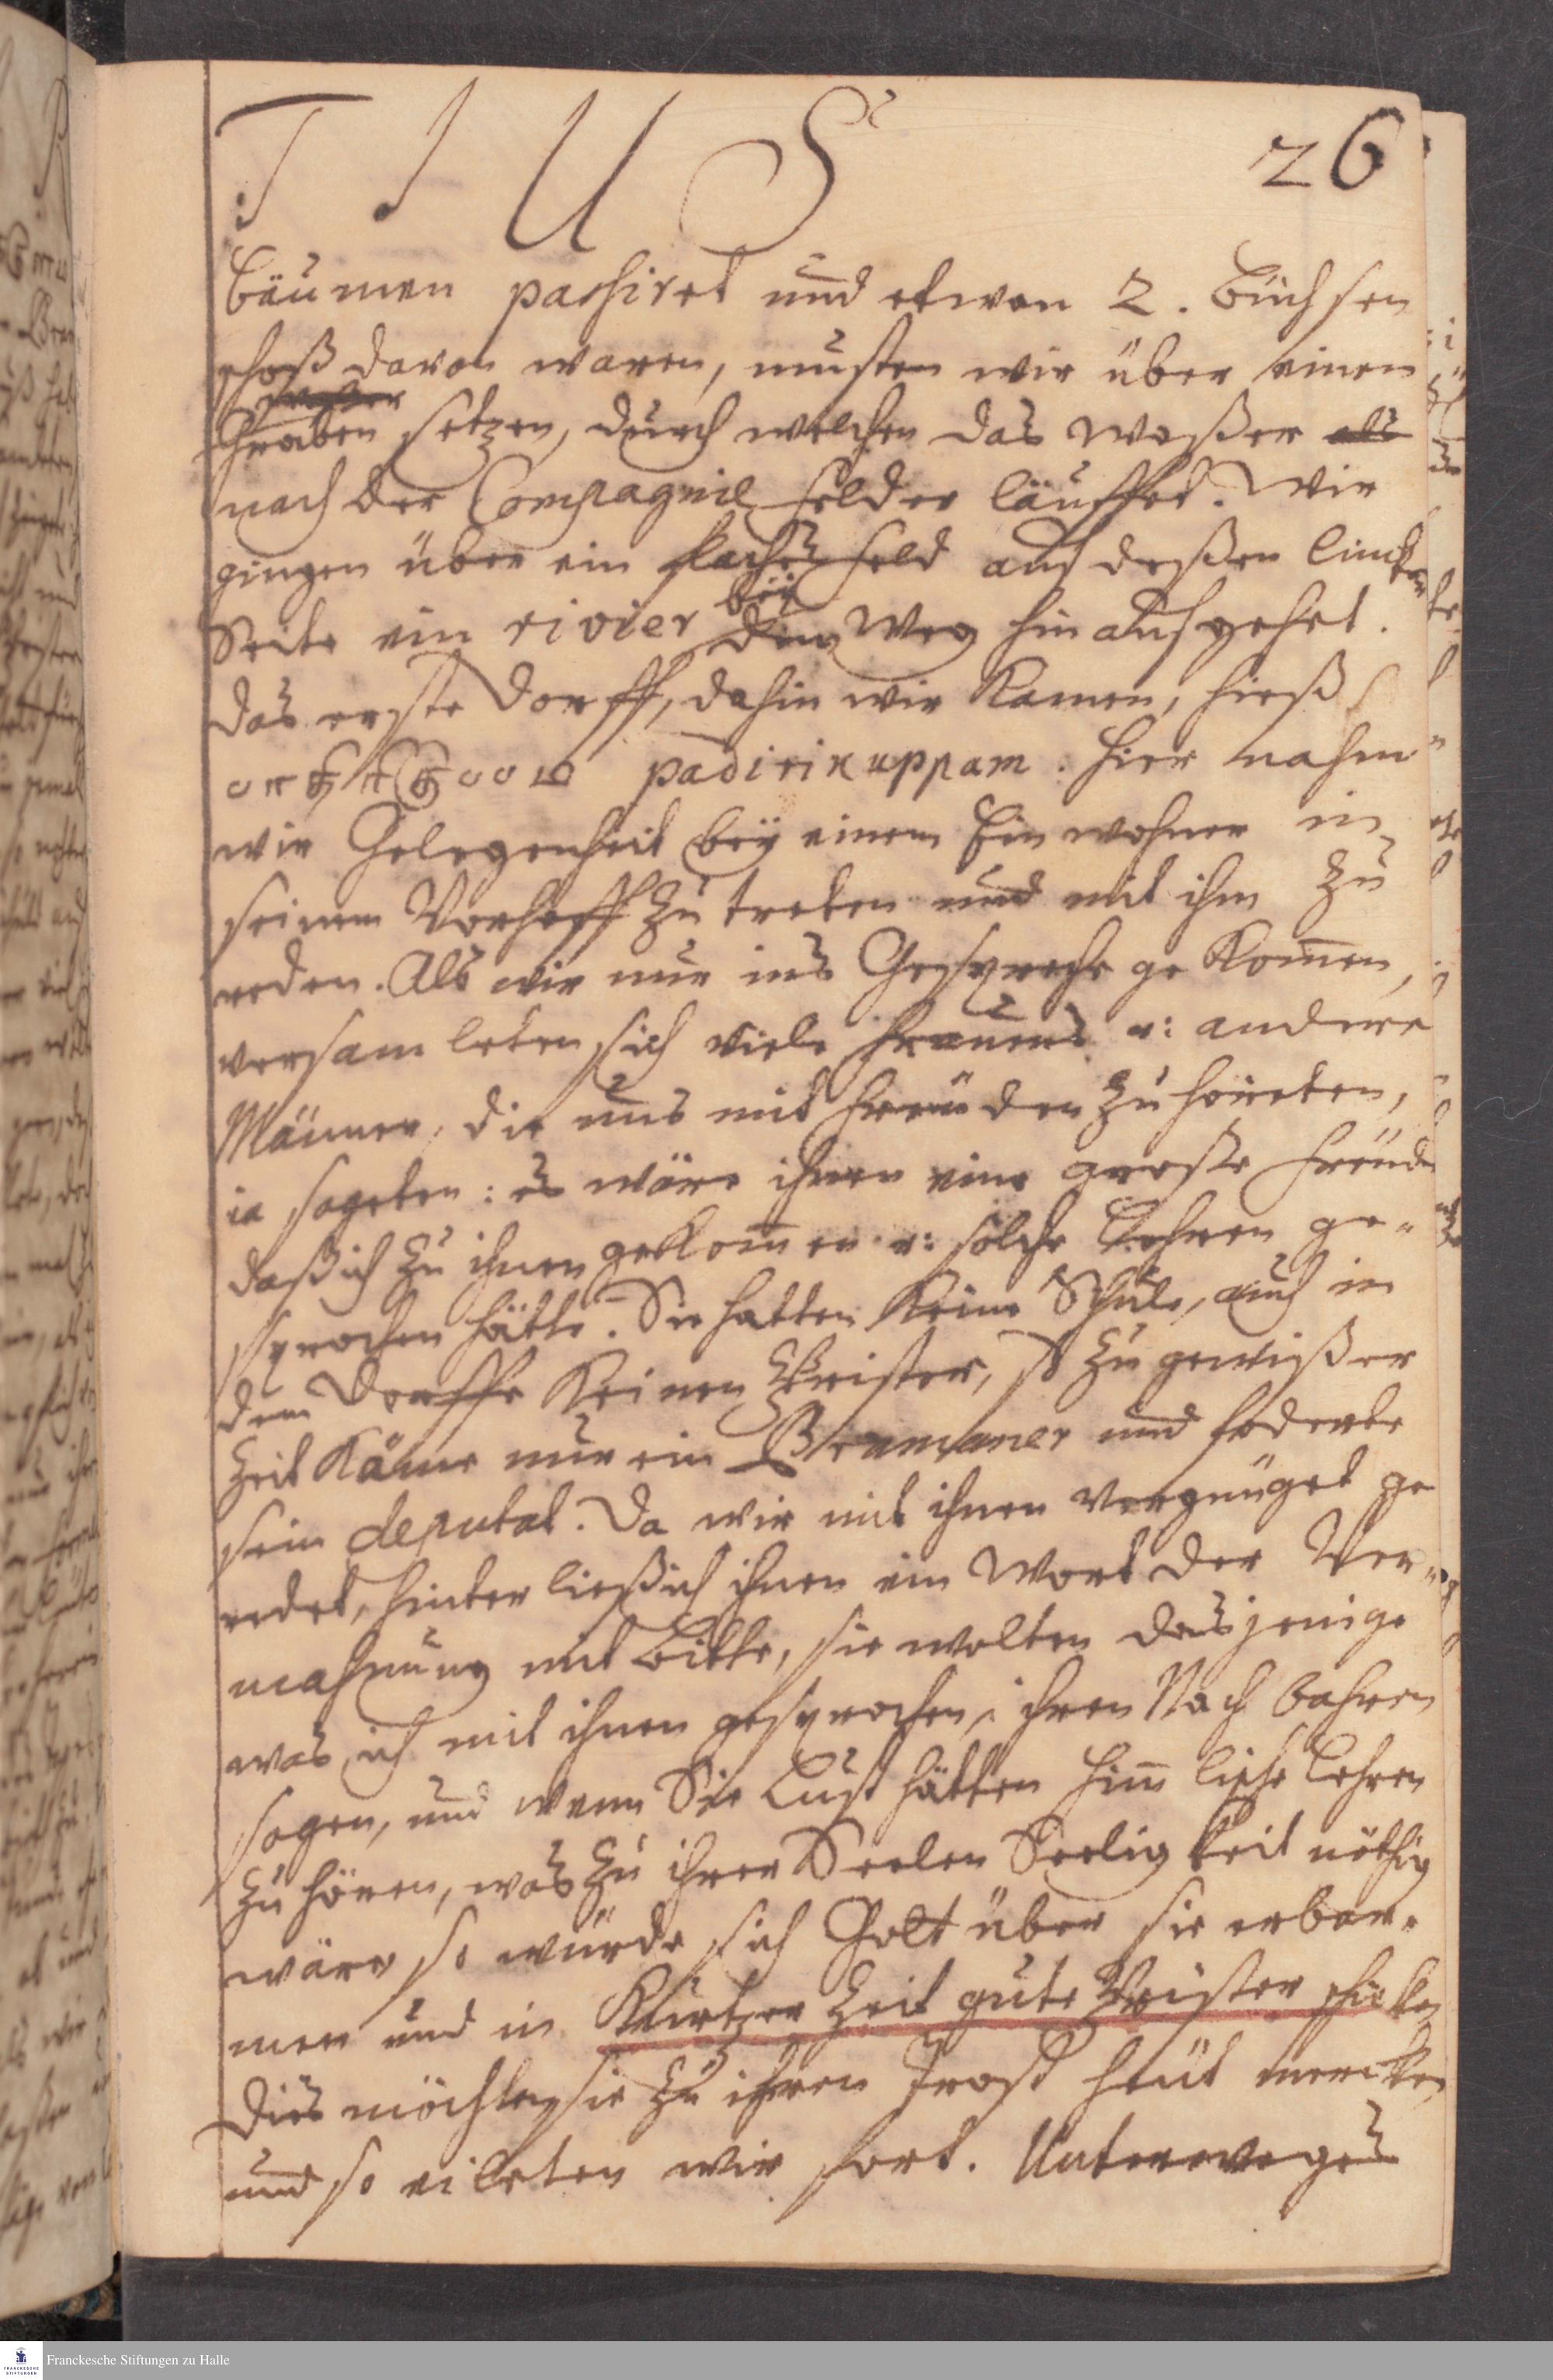 T I U S
26
bäumen passiret und etwan 2. büchsen
schoß davon waren, musten wir über einen
Graben setzen, durch welchen das waßer als
nach der Compagnie felder läuffet. Wir
gingen über ein flaches feld auf deßen lincken
bey
Seite ein rivier dem Weg hinauf gehet.
das erste Dorff, dahin wir kamen, hieß
பாதிரிகுபபம padirikuppam. hier nahm
wir Gelegenheit bey einem Einwohner in
seinem Vorhoff zu treten und mit ihm zu
reden. Als wir nun ins Gespreche gekom̅en,
versamleten sich viele frauens u: andere
Männer, die uns mit freuden zu höreten,
ia sageten: es wäre ihnen eine große freude
daß ich zu ihnen gekom̅en u: solche Lehren ge-
sprochen hätte. Sie hatten keine Schule, auch in
dem Dorffe keinen Prister, so zu gewißer
Zeit käme nur ein Bramaner und foderte
sein deputat. Da wir mit ihnen vergnüget ge
redet, hinterließ ich ihnen ein Wort der Ver-
mahnung mit bitte, sie wolten dasjenige
was ich mit ihnen gesprochen, ihren Nachbahren
sagen, und wenn Sie Lust hätten him̅lische Lehren
zu hören, was zu ihrer Seelen Seeligkeit nöthig
wäre so würde sich Gott über sie erbar-
men und in kurtzer Zeit gute Prister schicken
dies möchten sie zu ihren Trost heut mercken
und so eileten wir fort. Unterweges
Franckesche Stiftungen zu Halle